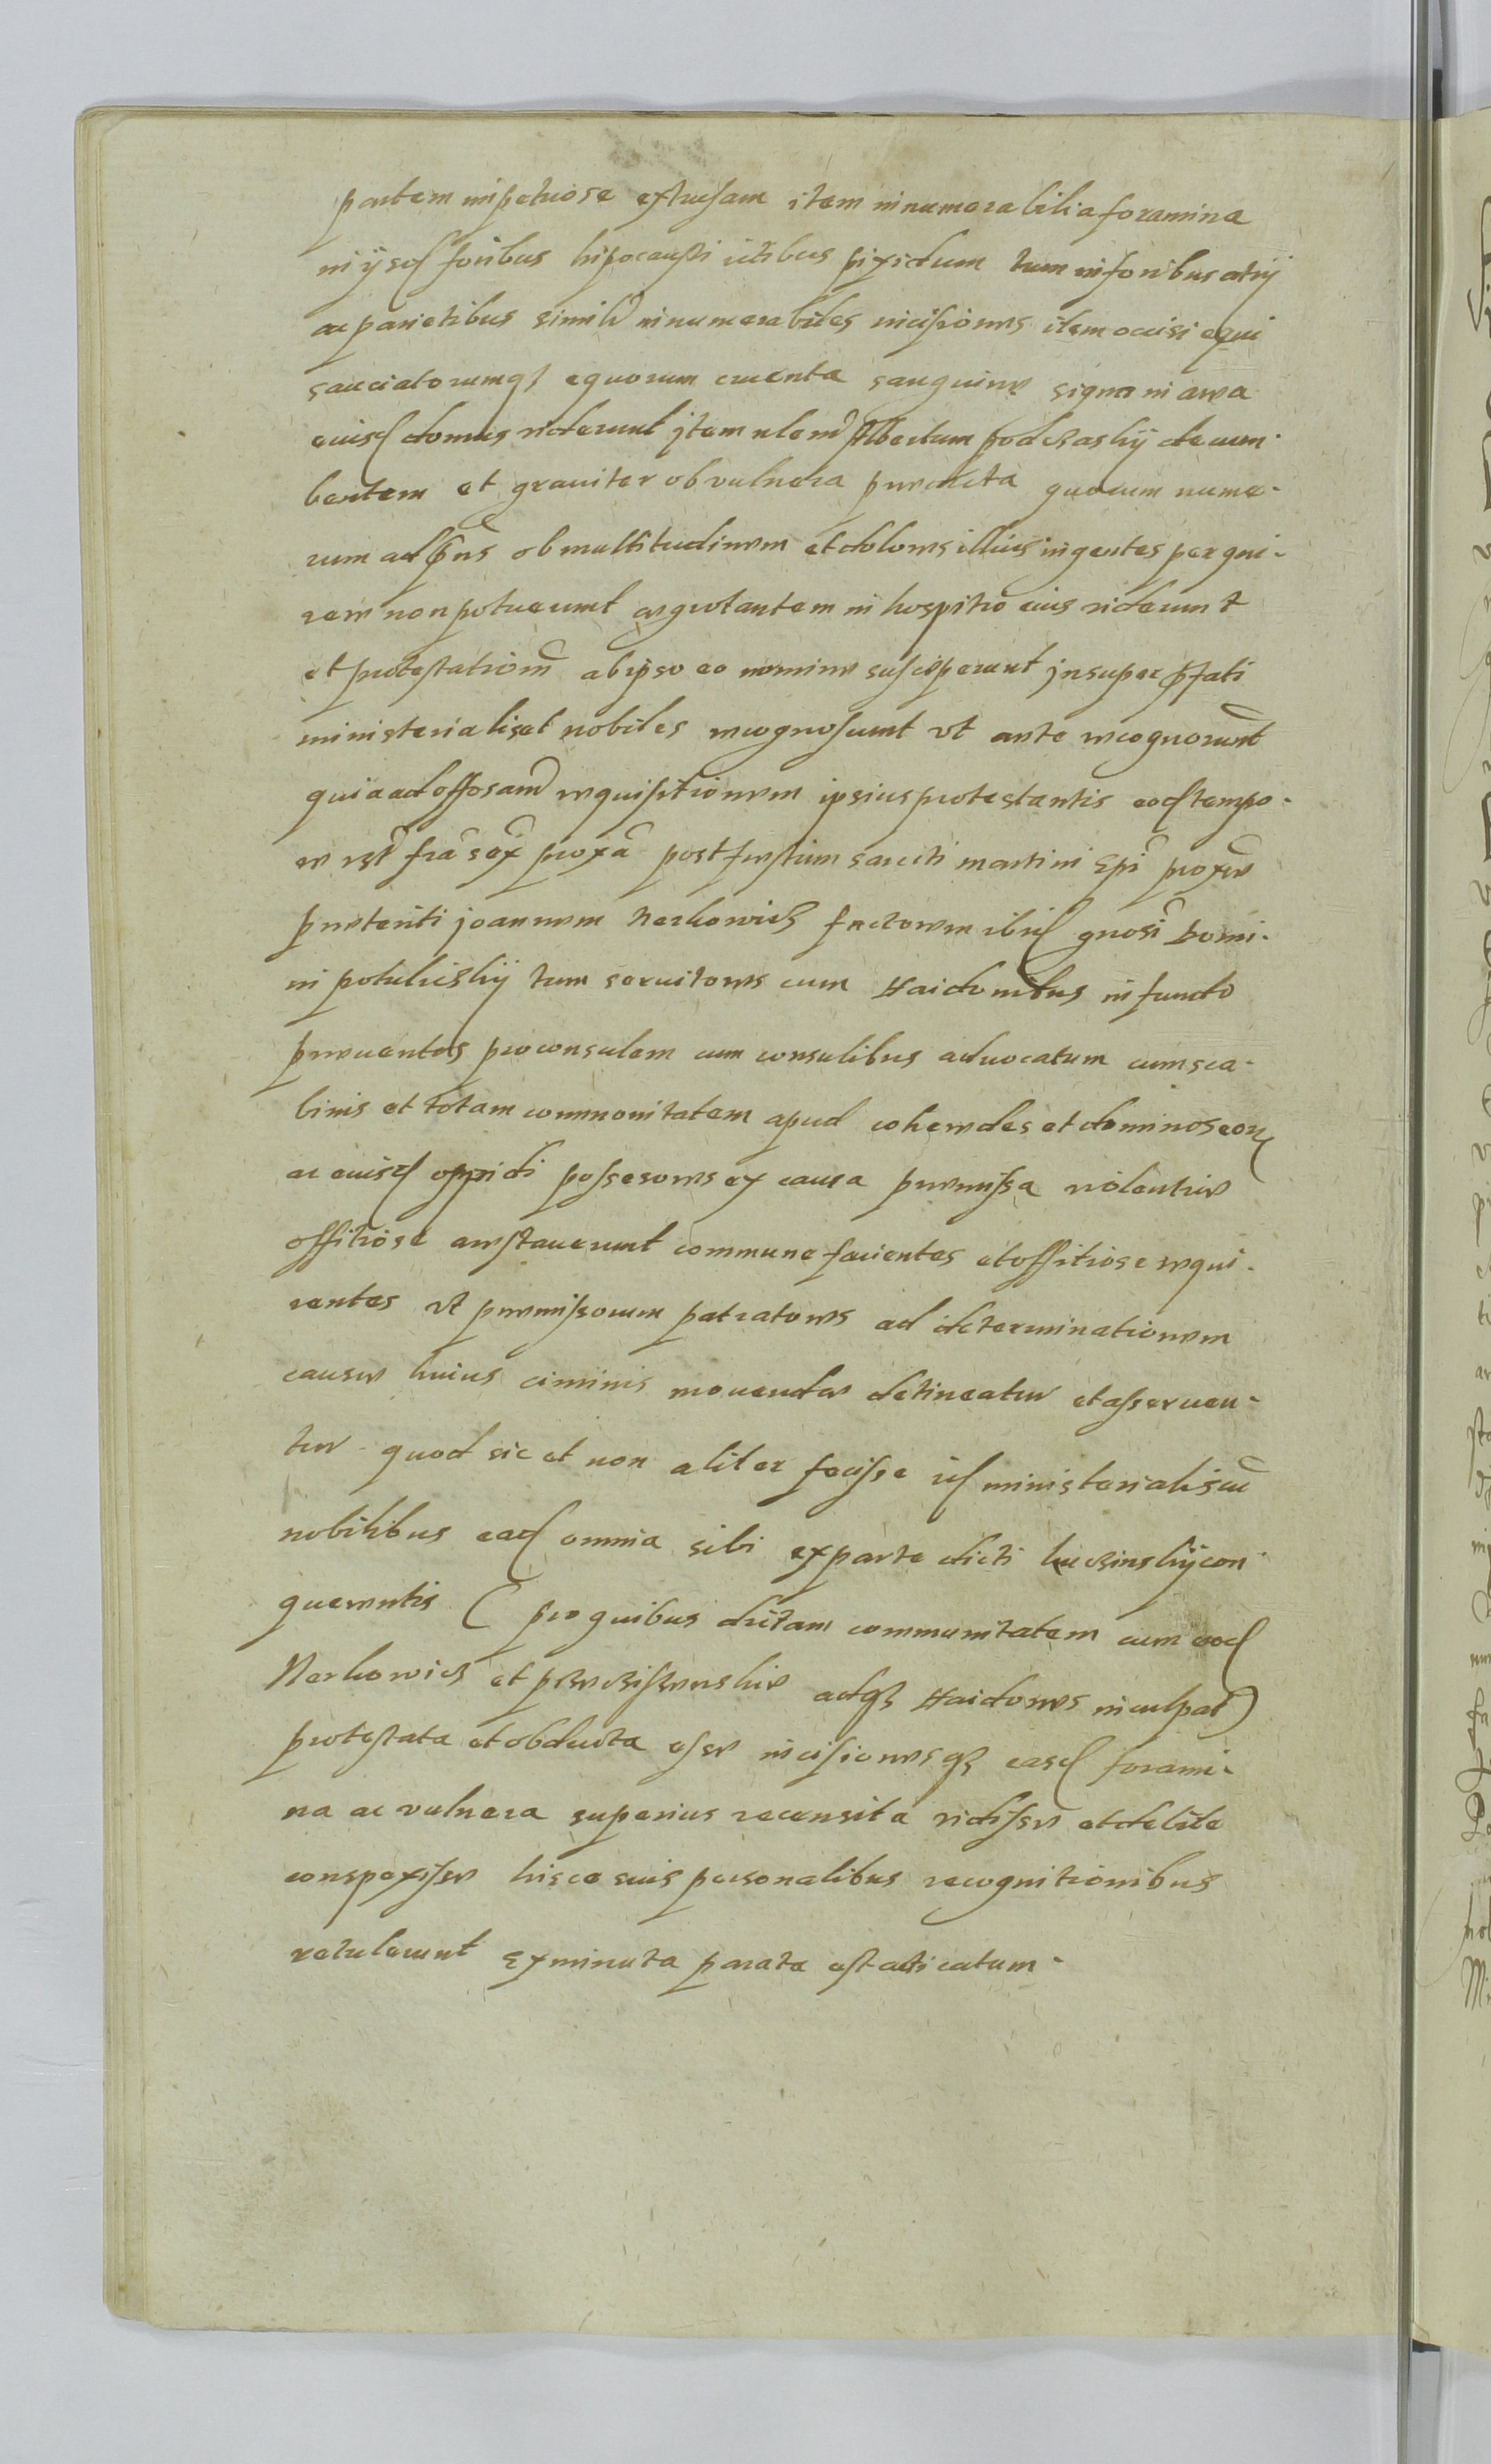 partem impetuose extrusam item innumerabilia foramina
in ijsd foribus hipocausti ictibus pixidum tum in foribus atrij
ac parietibus simili innumerabiles incisiones item occisi equi
sauciatorumq equorum cruenta sanguine signa in area
eiusd domus viderunt jtem Albertum podczaskij decum-
bentem et grauiter ob vulnera puncta quorum nume-
rum ad pns ob multitudinem et dolores illius ingentes perqui-
rere non potuerunt aegrotantem in hospitio eius viderunt
et protestationem ab ipso eo nomine susceperunt jnsuper pfati
ministerialis et nobiles recognoscunt vt ante recognorunt
quia ad offosam requisitionem ipsius protestantis eod tempo-
re fra sex proxa post festum sancti martini Epi proxe
praeteriti joannem Nerkowicz factorem ibid gnosi Domi-
ni potulickij tum seruitores cum Haidonibus in fundo
praeuentos proconsulem cum consulibus aduocatum cum sca-
binis et totam communitatem apud cohaeredes et dominos eor
ac eiusd oppidi possesores ex causa praemissa violentiae
offitiose arestauerunt commune facientes et offitiose requi-
rentes vt praemissorum patratores ad determinationem
causae huius criminis mouendae detineatur et asseruen-
tur quod sic et non aliter fecisse id ministerialis cu
nobilibus ead omnia sibi ex parte dicti con-
querentis ( pro quibus dictam communitatem cum eod
Nerkowicz et adq Haidones inculpat )
protestata et obducta esse incisionesq easd forami-
na ac vulnera superius recensita vidisse et debite
conspexisse hisce suis personalibus recognitionibus
retulerunt Ex minuta parata est acticatum.